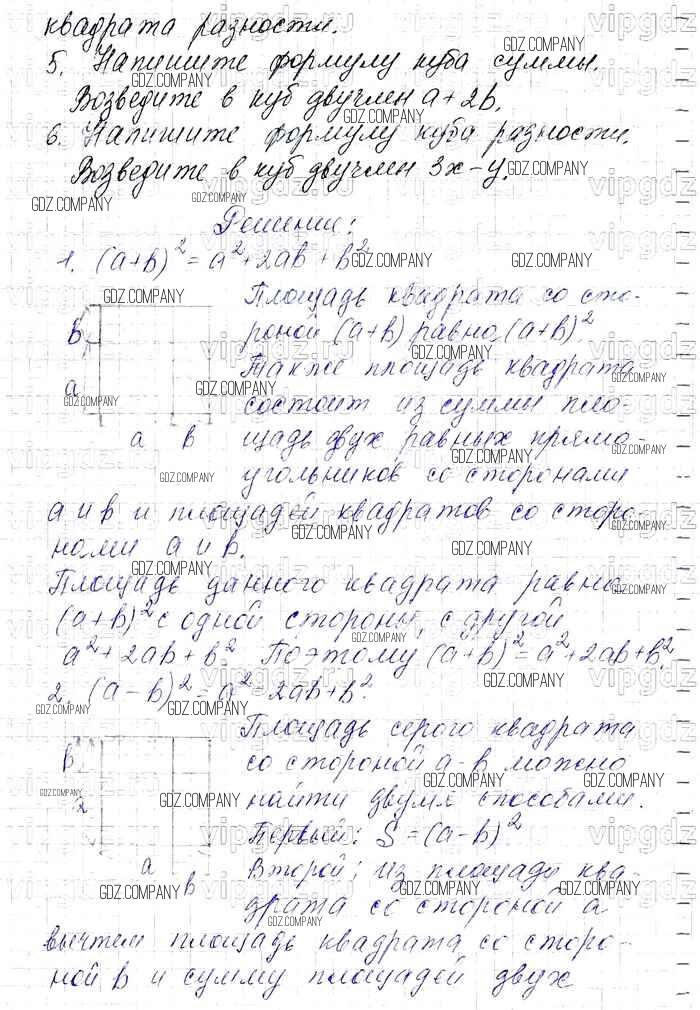 квадрата разности.
5. Напишите формулу куба суммы.
Возведите в куб двучлен a+2b.
6. Напишите формулу куба разности.
Возведите в куб двучлен 3x-y.
Решение:
1. (a+b)² = a²+2ab+b²
Площадь квадрата со сто-
роной (a+b) равна (a+b)²
Также площадь квадрата
состоит из суммы пло-
щадь двух равных прямо-
угольников со сторонами
a и b и площадей квадратов со сторо-
нами a и b.
Площадь данного квадрата равна
(a+b)² с одной стороны, с другой
a²+2ab+b². Поэтому (a+b)²=a²+2ab+b².
2. (a-b)²=a²-2ab+b².
Площадь серого квадрата
со стороной a-b можно
найти двумя способами.
Первый: S=(a-b)²
Второй: из площади ква-
драта со стороной a
вычтем площадь квадрата со сторо-
ной b и сумму площадей двух
b
a
a b
b
a
b
GDZ.COMPANY
vipgdz.ru